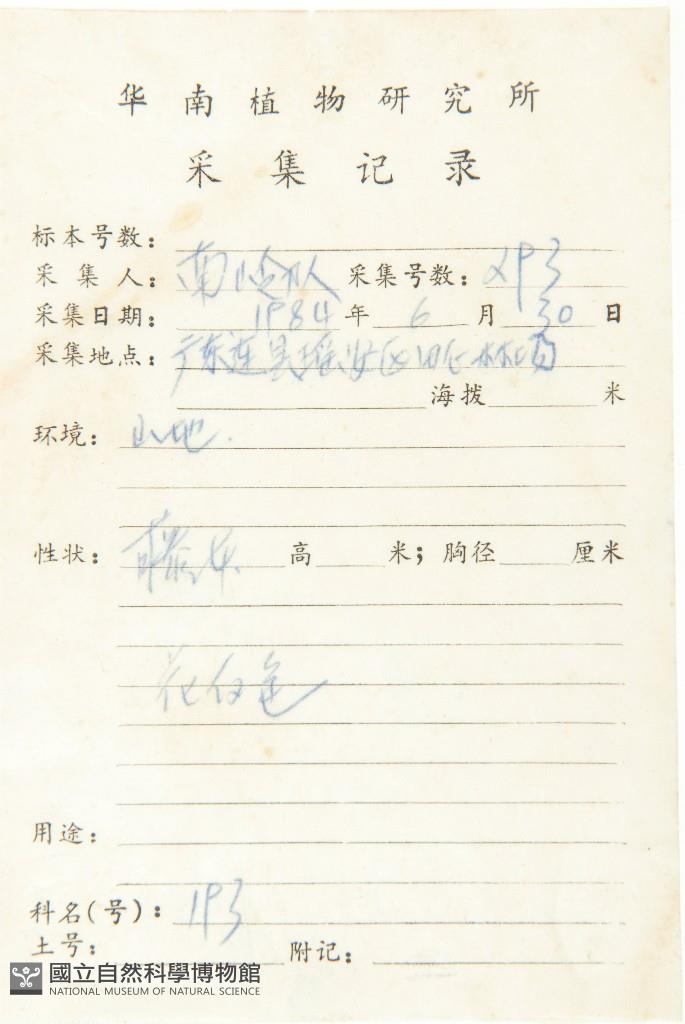 华南植物研究所
采集记录
标本号数：
采集人：南岭队 采集号数：293
采集日期：1984年6月30日
采集地点：广东连县瑶安区田心林场
海拨 米
环境：山地.
性状：藤本. 高 米；胸径 厘米
花白色
用途：
科名(号)：193
土号： 附记：
國立自然科學博物館
NATIONAL MUSEUM OF NATURAL SCIENCE